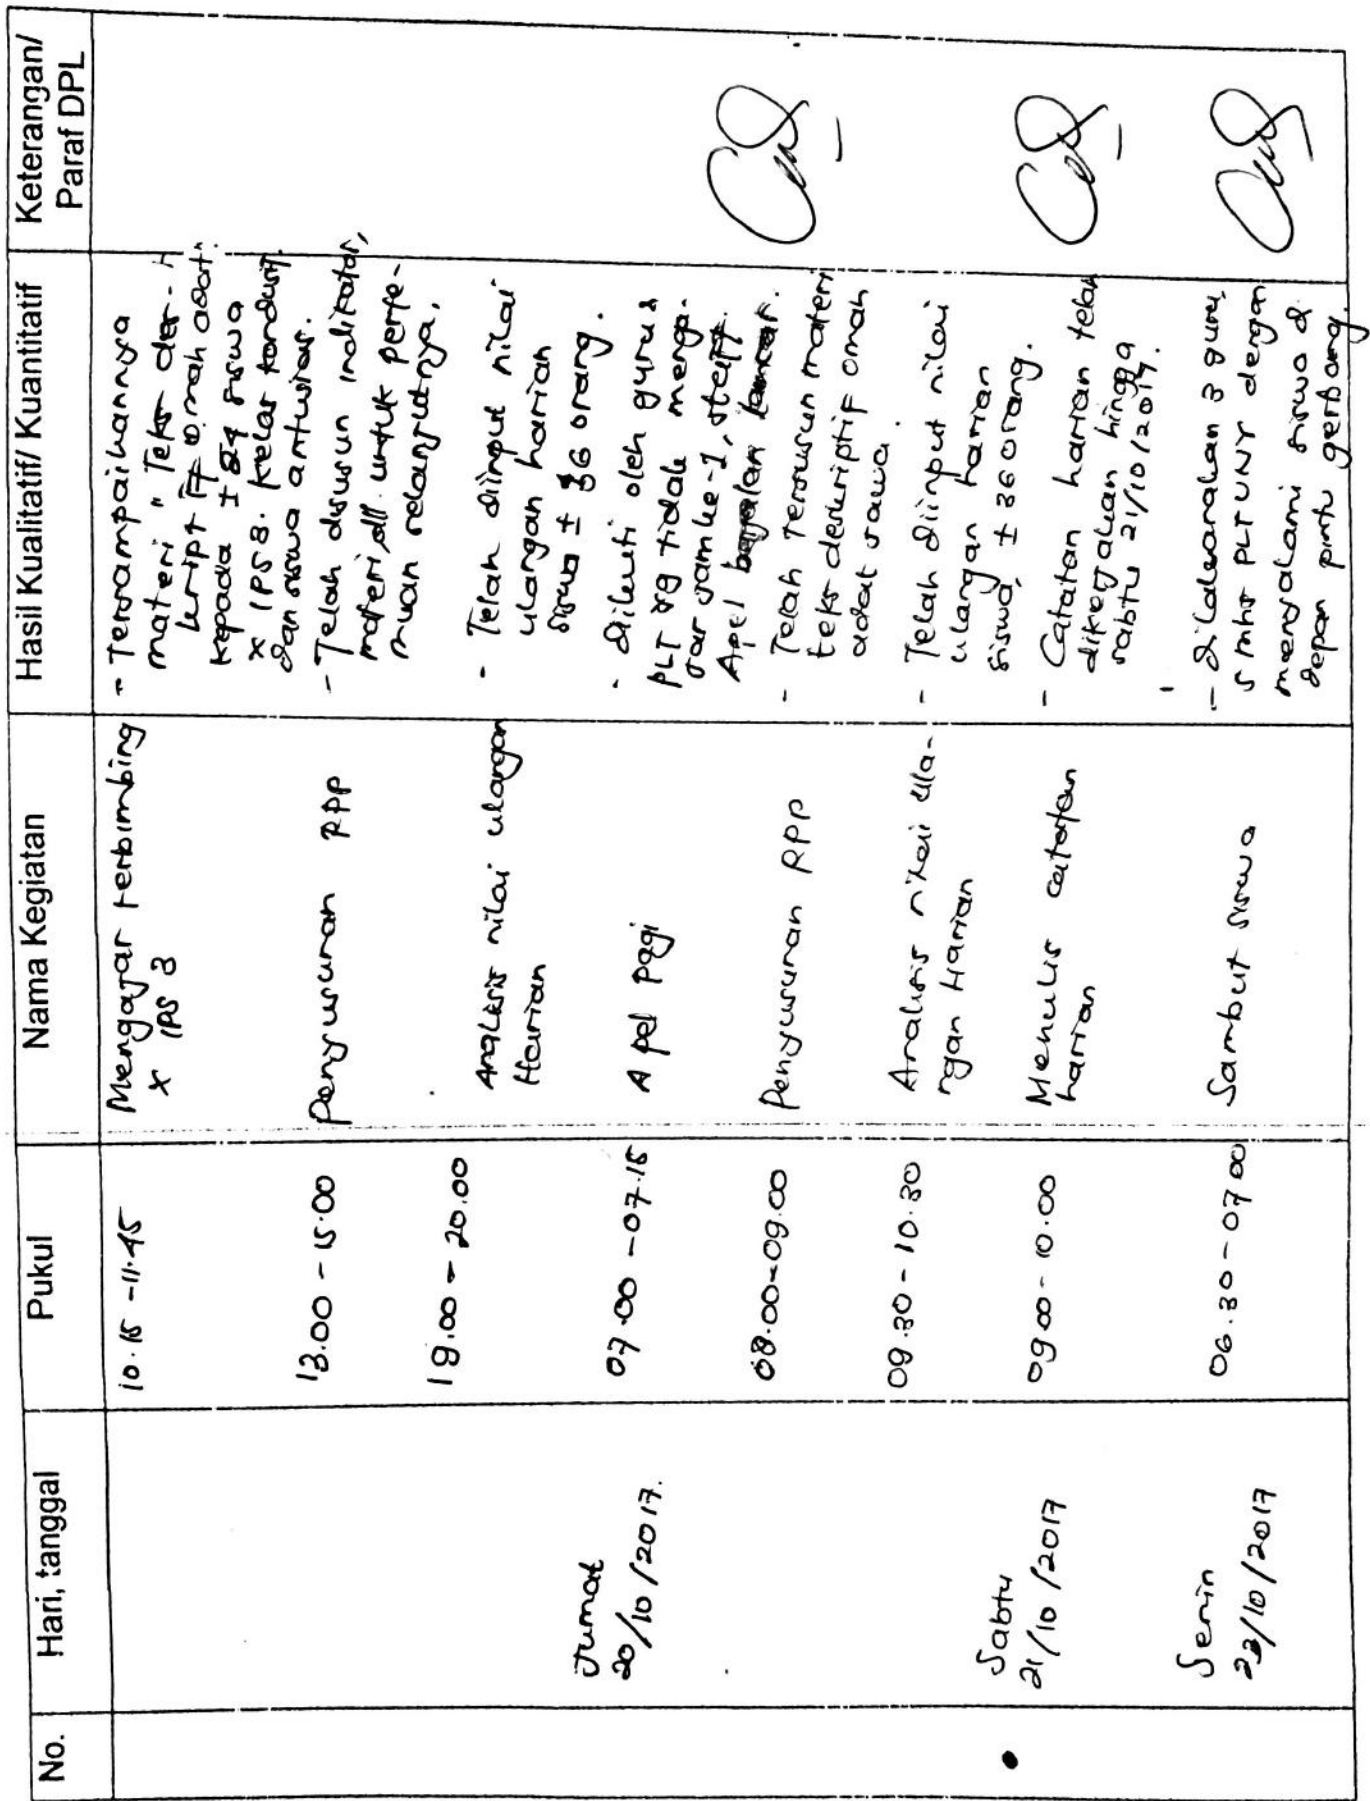 No.
Hari, tanggal
Pukul
Nama Kegiatan
Hasil Kualitatif/ Kuantitatif
Keterangan/
Paraf DPL
10.15 - 11.45
Mengajar terbimbing
X IPS 3
- Tersampaikannya
materi " Teks des-
kriptif omah adat"
kepada ± siswa
X IPS 3. Kelas kondusif
dan siswa antusias.
13.00 - 15.00
Penyusunan RPP
- Telah disusun indikator,
materi, dll untuk perte-
muan selanjutnya.
19.00 - 20.00
Analisis nilai ulangan
Harian
- Telah diinput nilai
ulangan harian
siswa ± 36 orang.
Jumat
20/10/2017.
07.00 - 07.15
Apel pagi
- Diikuti oleh guru &
PLT yg tidak menga-
jar jam ke-1, staff.
Apel berjalan lancar.
08.00 - 09.00
Penyusunan RPP
- Telah tersusun materi
teks deskriptif omah
adat Jawa.
09.30 - 10.30
Analisis nilai ula-
ngan Harian
- Telah diinput nilai
ulangan harian
siswa ± 36 orang.
Sabtu
21/10/2017
09.00 - 10.00
Menulis catatan
harian
- Catatan harian telah
dikerjakan hingga
sabtu 21/10/2017.
Senin
23/10/2017
06.30 - 07.00
Sambut siswa
- Dilaksanakan 3 guru,
5 mhs PLT UNY dengan
menyalami siswa di
depan pintu gerbang.